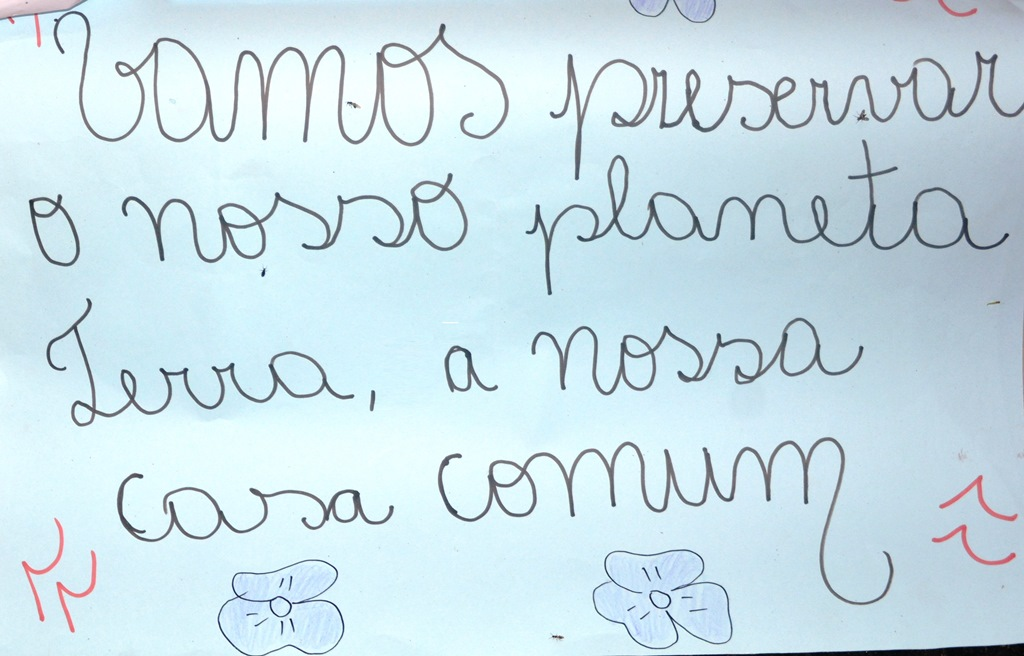 Vamos preservar
o nosso planeta
Terra, a nossa
casa comum